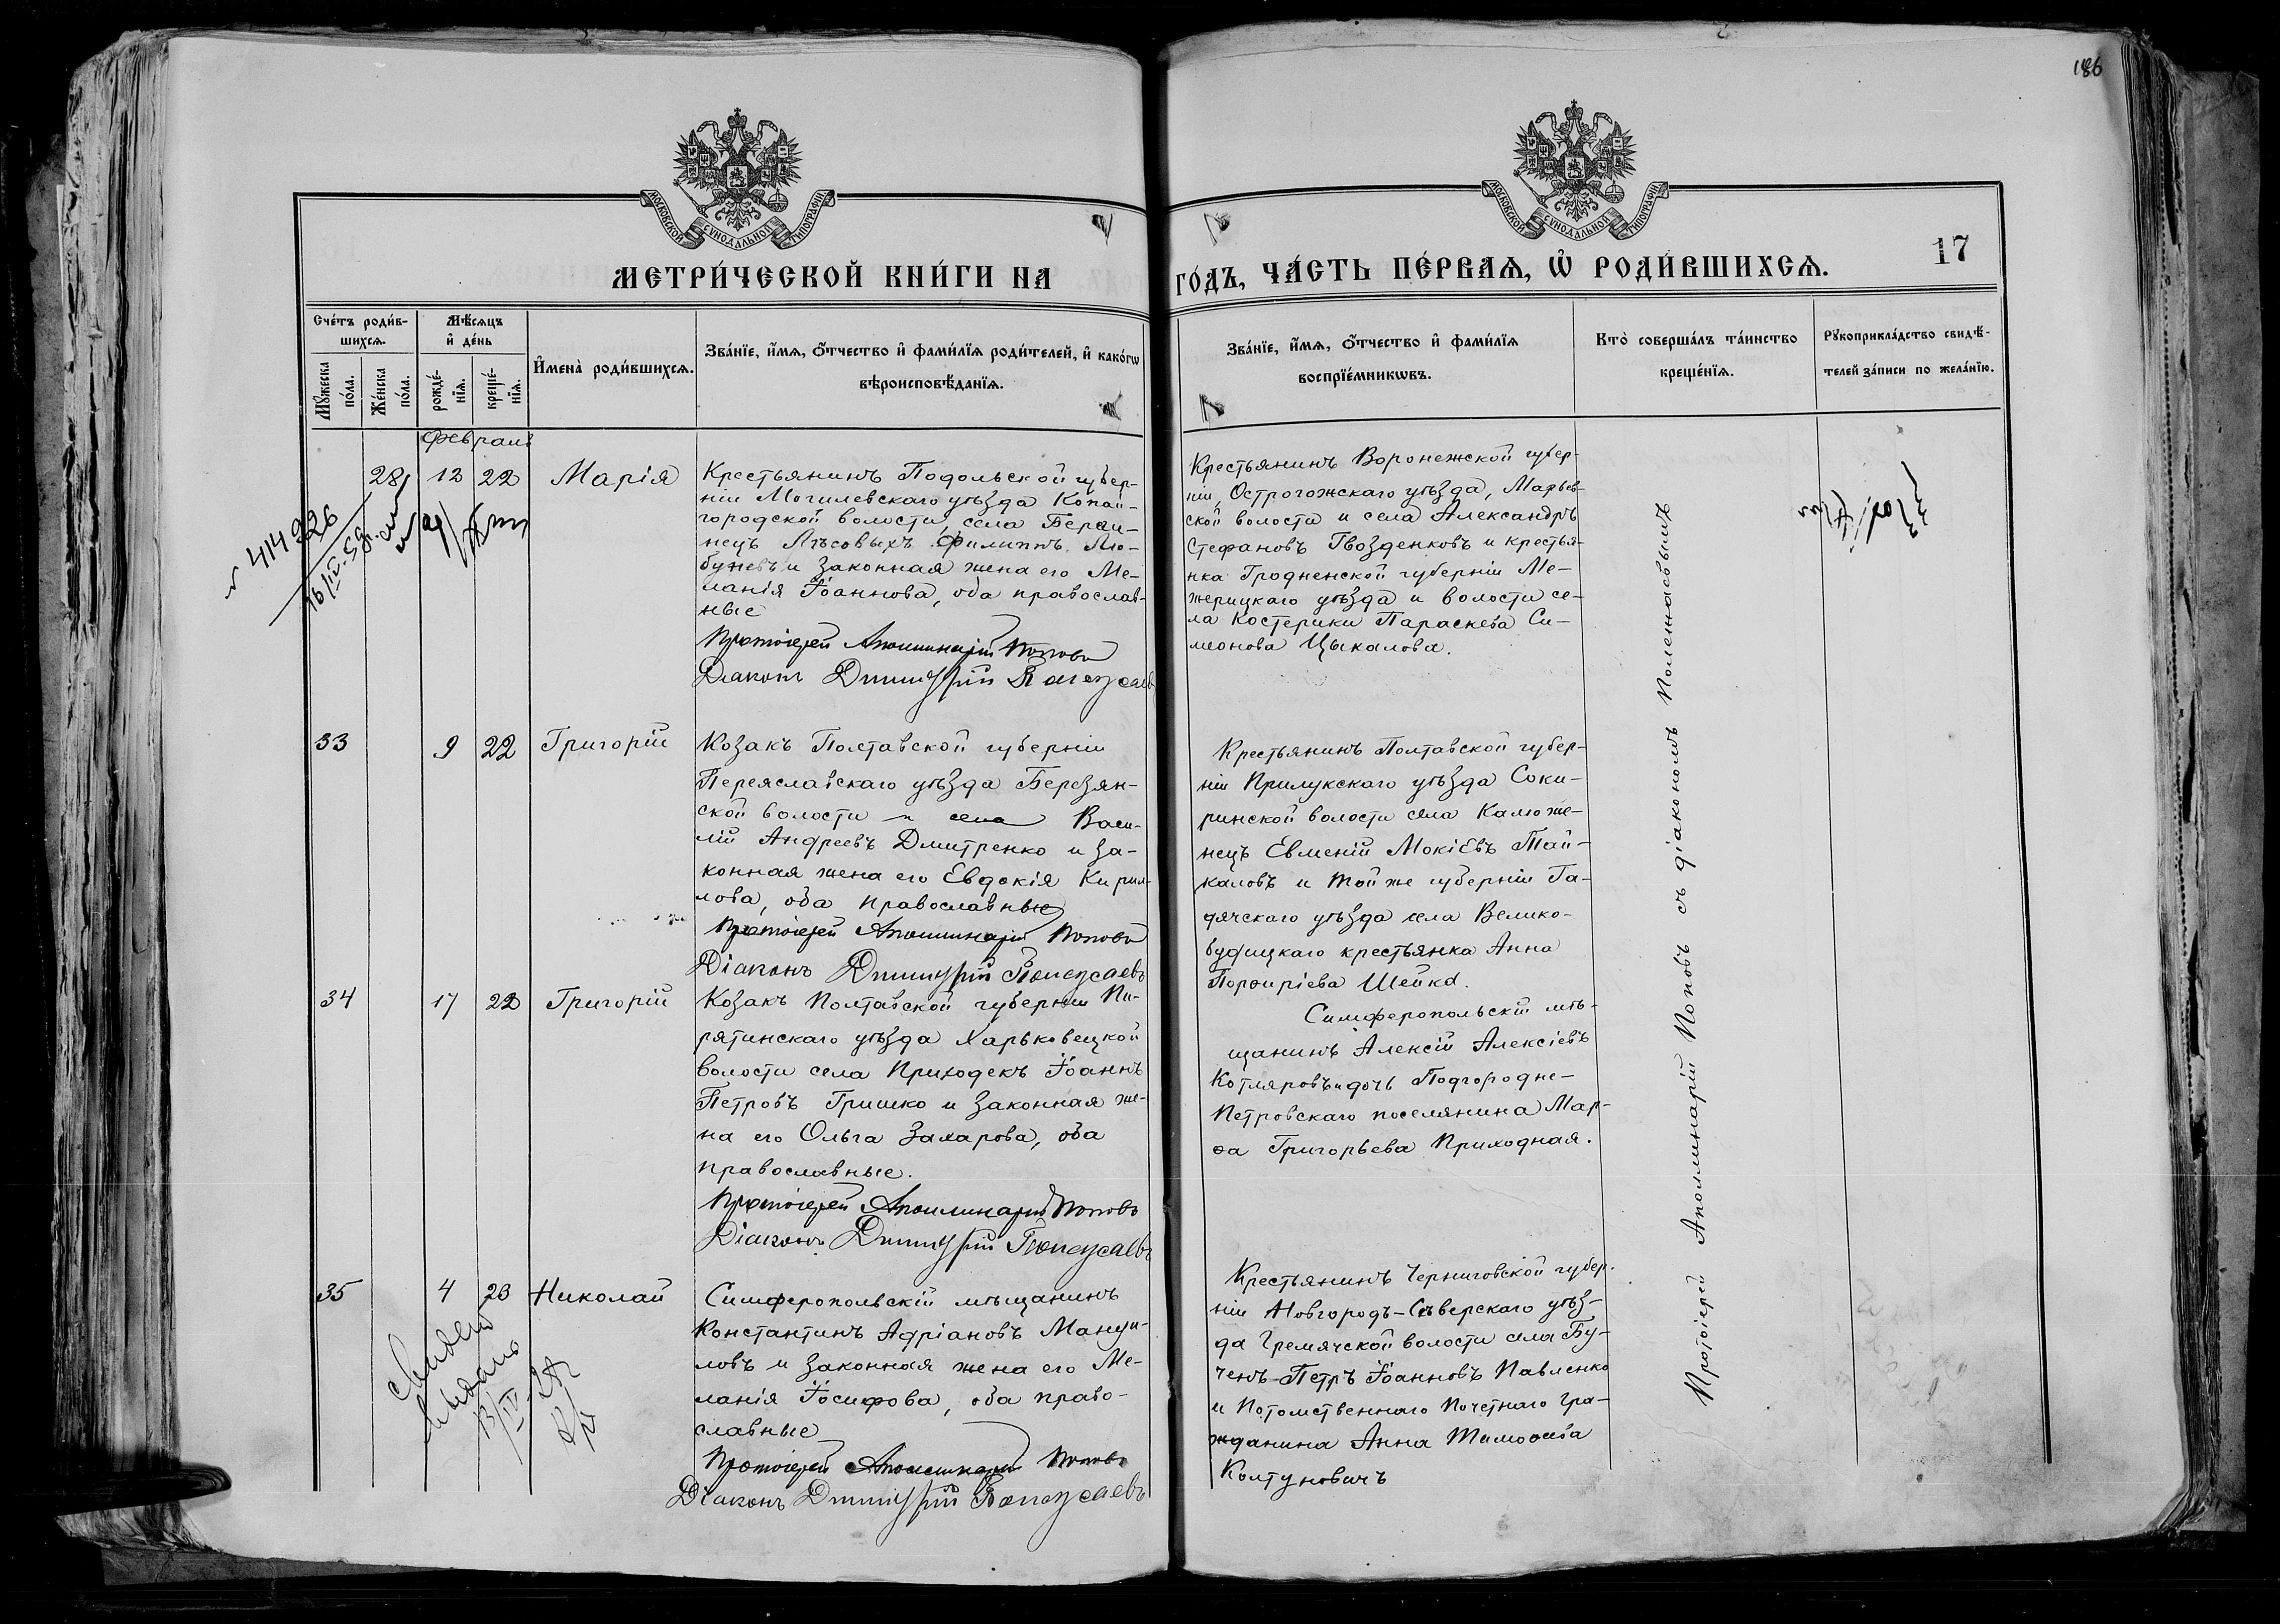 186
МОСКОВСКОЙ СУНОДАЛЬНОЙ ТИПОГРАФІИ
МОСКОВСКОЙ СУНОДАЛЬНОЙ ТИПОГРАФІИ
МЕТРИ́ЧЕСКОЙ КНИ́ГИ НА
ГО́ДЪ, ЧА́СТЬ ПЕ́РВАѦ, Ѡ҆ РОДИ́ВШИХСѦ.
17
Сче́тъ роди́в-
шихсѧ.
Мꙋ́жеска
по́ла.
Же́нска
по́ла.
Мѣ́сѧцъ
и҆ де́нь
рожде́-
нїѧ.
креще́-
нїѧ.
И҆мена̀ роди́вшихсѧ.
Зва́нїе, и҆́мѧ, ѻ҆́тчество и҆ фами́лїѧ роди́телей, и҆ како́гѡ
вѣроисповѣ́данїѧ.
Зва́нїе, и҆́мѧ, ѻ҆́тчество и҆ фами́лїѧ
воспрїе́мникѡвъ.
Кто̀ соверша́лъ та́инство
креще́нїѧ.
Рꙋкоприкла́дство свидѣ́-
телей за́писи по жела́нїю.
Февраль
28 12 22 Марія
Крестьянинъ Подольской губер-
ніи Могилевскаго уѣзда Копай-
городской волости, села
Лѣсовыхъ Филиппъ Лю-
и законная жена его Ме-
ланія Іоаннова, оба православ-
ные
Протоіерей Аполлинарій Поповъ
Діаконъ Димитрій
Крестьянинъ Воронежской губер-
ніи, Острогожскаго уѣзда, Марьев-
ской волости и села Александръ
Стефановъ Гвозденковъ и крестья-
нка Гродненской губерніи Ме-
жерицкаго уѣзда и волости се-
ла Костерики Параскева Си-
меонова Цыкалова.
N 414226
16/IV-59г.
33 9 22 Григорій
Козакъ Полтавской губерніи
Переяславскаго уѣзда Березян-
ской волости и села Васи-
лій Андреевъ Дмитренко и за-
конная жена его Евдокія Кирил-
лова, оба православные
Протоіерей Аполлинарій Поповъ
Діаконъ Димитрій
Крестьянинъ Полтавской губер-
ніи Прилукскаго уѣзда Соки-
ринской волости села Калюже-
нецъ Евменій Мокіевъ Тай-
каловъ и той же губерніи Га-
дячскаго уѣзда села Велико-
будицкаго крестьянка Анна
Порфиріева Шейка.
34 17 22 Григорій
Козакъ Полтавской губерніи Пи-
рятинскаго уѣзда Харьковецкой
волости села Приходекъ Іоаннъ
Петровъ Гришко и законная же-
на его Ольга Захарова, оба
православные.
Протоіерей Аполлинарій Поповъ
Діаконъ Димитрій
Симферопольскій мѣ-
щанинъ Алексій Алексіевъ
Котляровъ и дочь Подгородне-
Петровскаго поселянина Мар-
ѳа Григорьева Приходная.
35 4 23 Николай
Симферопольскій мѣщанинъ
Константинъ Адріановъ Мануи-
ловъ и законная жена его Ме-
ланія Іосифова, оба право-
славные
Протоіерей Аполлинарій Поповъ
Діаконъ Димитрій
Крестьянинъ Черниговской губер-
ніи Новгородъ-Сѣверскаго уѣз-
да Гремячской волости села Бу-
ченъ Петръ Іоанновъ Павленко
и Потомственнаго Почетнаго Гра-
жданина Анна Тимоѳеева
Колтуновичъ
Протоіерей Аполлинарій Поповъ съ діакономъ